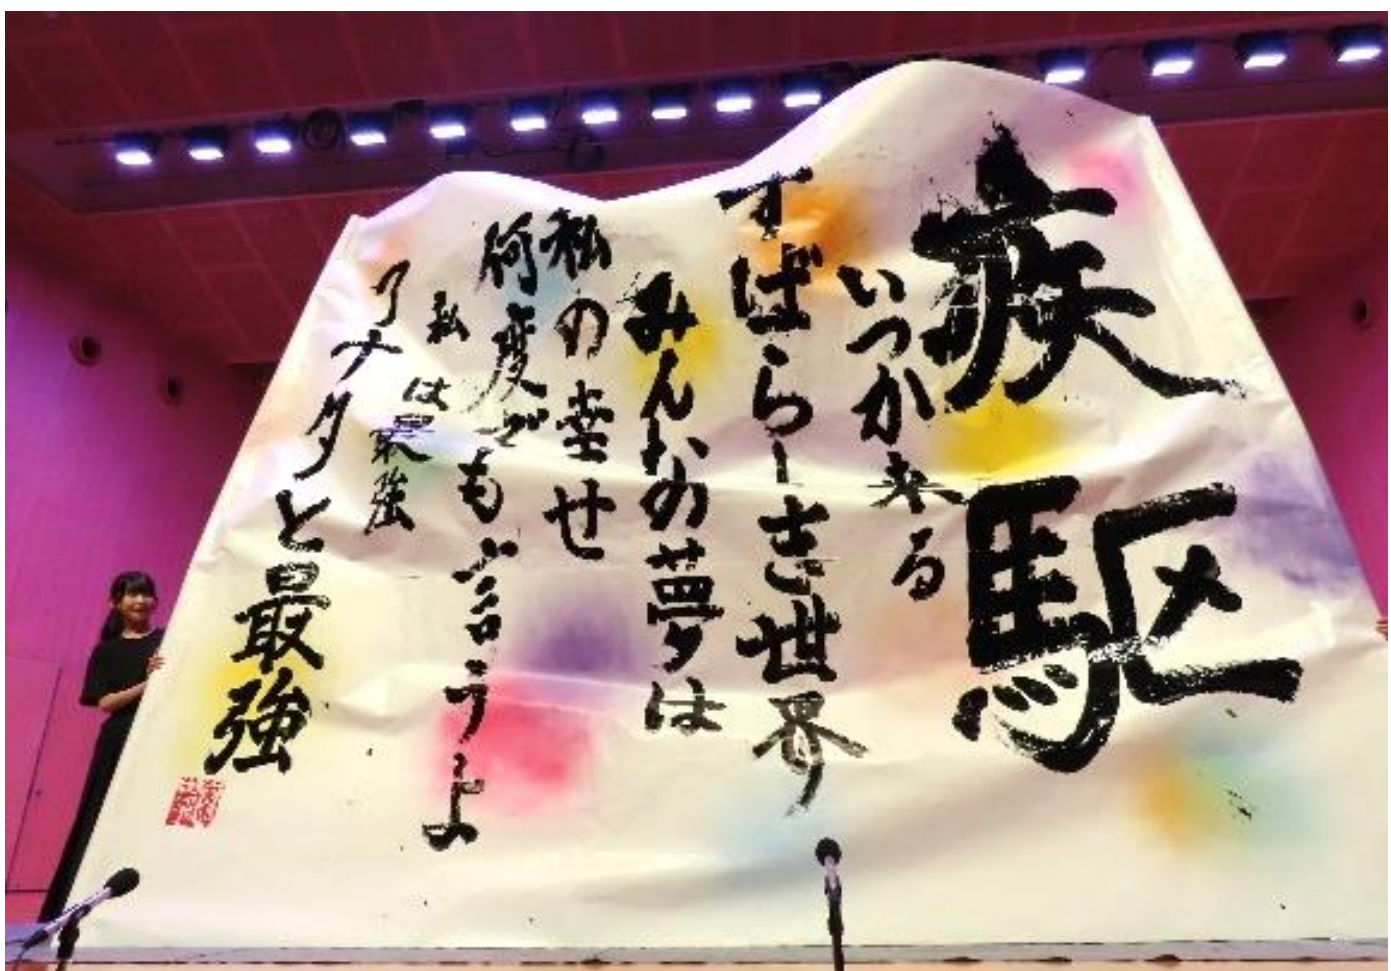 疾駆
いつか来る
すばらしき世界
みんなの夢は
私の幸せ
何度でも言うよ
私は最強
アナタと最強